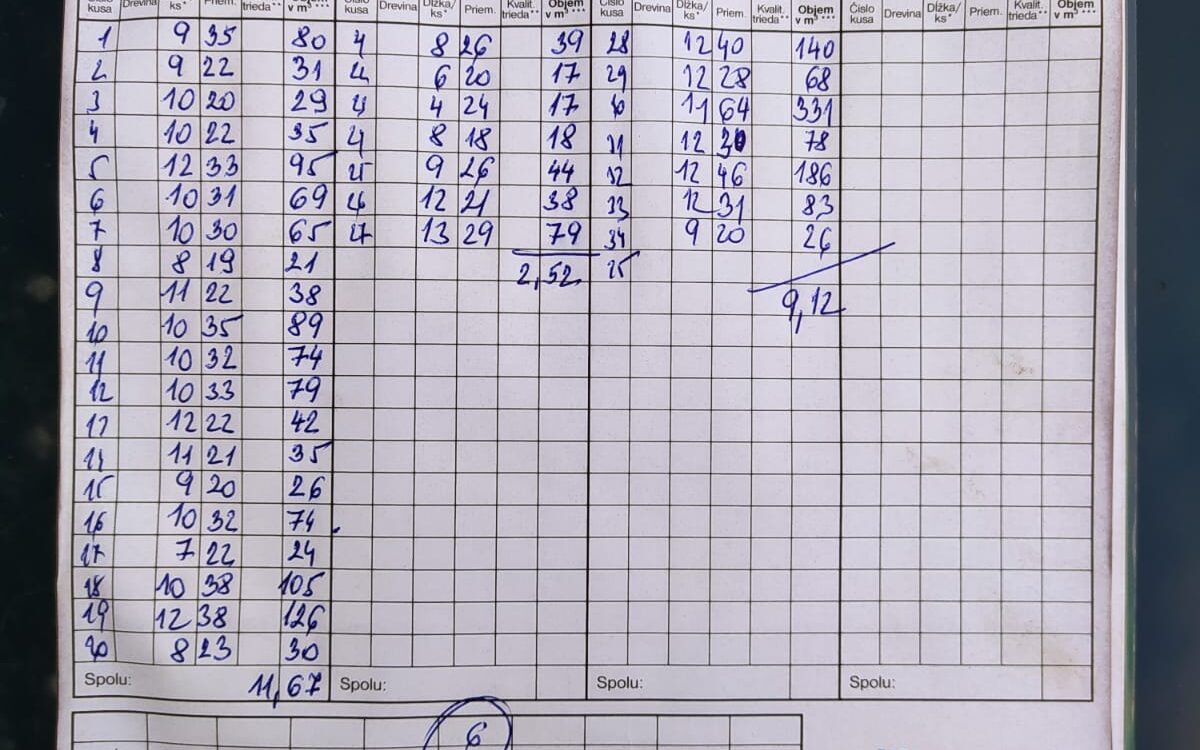 kusa Drevina ks* Priem. trieda** v m³*** kusa Drevina Dĺžka/ ks* Priem. Kvalit. trieda** Objem v m³*** Číslo kusa Drevina Dĺžka/ ks* Priem. Kvalit. trieda** Objem v m³*** Číslo kusa Drevina Dĺžka/ ks* Priem. Kvalit. trieda** Objem v m³***
1 9 35 80 8 26 39 28 12 40 140
2 9 22 31 6 20 17 29 12 28 68
3 10 20 29 4 24 17 11 64 331
4 10 22 35 8 18 18 31 12 30 78
5 12 33 95 25 9 26 44 32 12 46 186
6 10 31 69 12 21 38 33 12 31 83
7 10 30 65 27 13 29 79 34 9 20 26
8 8 19 21 2,52
9 11 22 38 9,12
10 10 35 89
11 10 32 74
12 10 33 79
13 12 22 42
14 11 21 35
15 9 20 26
16 10 32 74
17 7 22 24
18 10 38 105
19 12 38 126
20 8 23 30
Spolu: 11,67 Spolu: Spolu: Spolu:
6